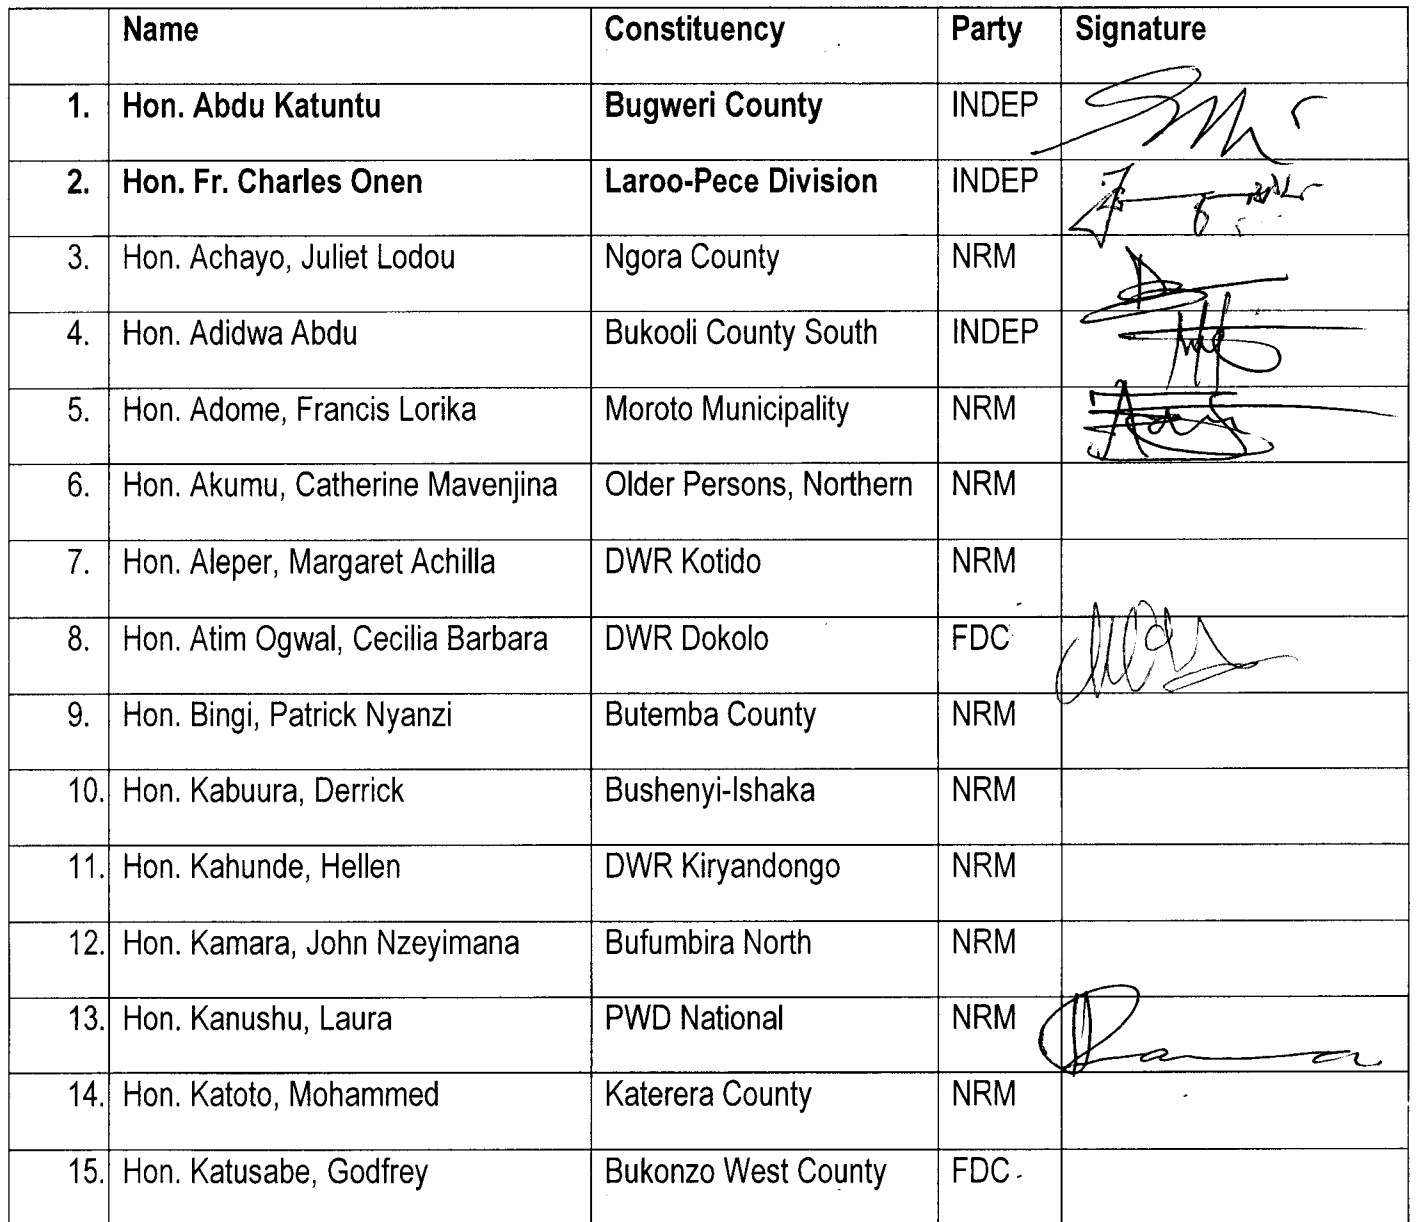 Name Constituency Party Signature
1. Hon. Abdu Katuntu Bugweri County INDEP
2. Hon. Fr. Charles Onen Laroo-Pece Division INDEP
3. Hon. Achayo, Juliet Lodou Ngora County NRM
4. Hon. Adidwa Abdu Bukooli County South INDEP
5. Hon. Adome, Francis Lorika Moroto Municipality NRM
6. Hon. Akumu, Catherine Mavenjina Older Persons, Northern NRM
7. Hon. Aleper, Margaret Achilla DWR Kotido NRM
8. Hon. Atim Ogwal, Cecilia Barbara DWR Dokolo FDC
9. Hon. Bingi, Patrick Nyanzi Butemba County NRM
10. Hon. Kabuura, Derrick Bushenyi-Ishaka NRM
11. Hon. Kahunde, Hellen DWR Kiryandongo NRM
12. Hon. Kamara, John Nzeyimana Bufumbira North NRM
13. Hon. Kanushu, Laura PWD National NRM
14. Hon. Katoto, Mohammed Katerera County NRM
15. Hon. Katusabe, Godfrey Bukonzo West County FDC